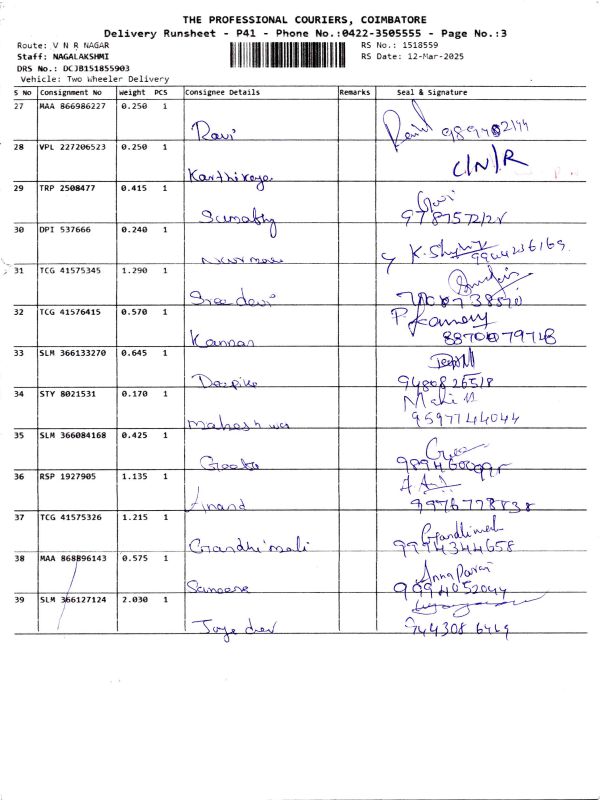 THE PROFESSIONAL COURIERS, COIMBATORE
Delivery Runsheet - P41 - Phone No.:0422-3505555 - Page No.:3
Route: V N R NAGAR RS No.: 1518559
Staff: NAGALAKSHMI RS Date: 12-Mar-2025
DRS No.: DCJB151855903
Vehicle: Two Wheeler Delivery
S No Consignment No Weight PCS Consignee Details Remarks Seal & Signature
27 MAA 866986227 0.250 1
Ravi
28 VPL 227206523 0.250 1 C/N/R
Karthikeya
29 TRP 2508477 0.415 1
Sumathy
30 DPI 537666 0.240 1
K.
31 TCG 41575345 1.290 1
Sreedevi
32 TCG 41576415 0.570 1 P.
Kannan 8870079748
33 SLM 366133270 0.645 1
Deepika 9480826518
34 STY 8021531 0.170 1
9597744044
35 SLM 366084168 0.425 1
Geetha
36 RSP 1927905 1.135 1
Anand 9976778838
37 TCG 41575326 1.215 1 Gandhimali
Gandhimali 9994344658
38 MAA 868896143 0.575 1
9994052044
39 SLM 366127124 2.030 1